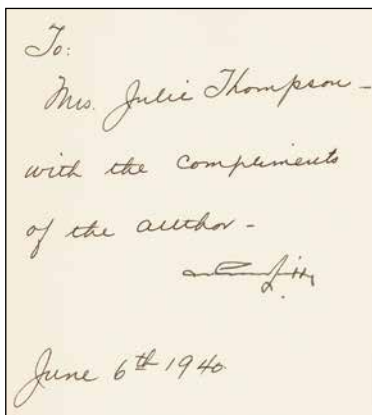 To:
Mrs. Julie Thompson –
with the compliments
of the author –
June 6th 1940